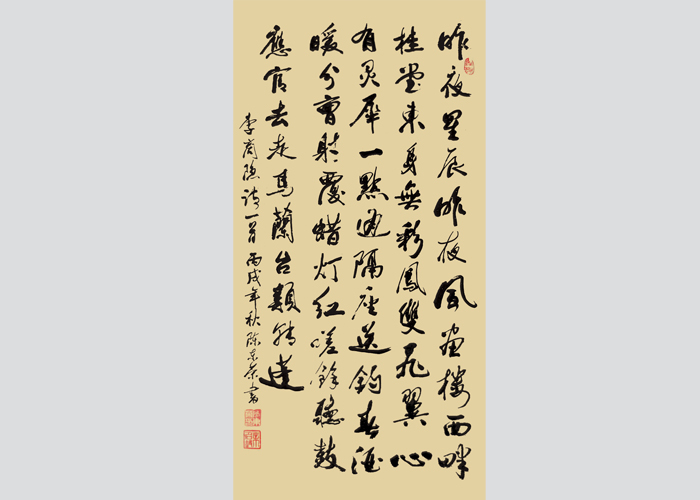 昨夜星辰昨夜風畫樓西畔
桂堂東身無彩鳳雙飛翼心
有灵犀一點通隔座送鉤春酒
暖分曹射覆蜡灯红嗟餘聽鼓
應官去走馬蘭台類轉蓬
李商隐诗一首丙戌年秋陈